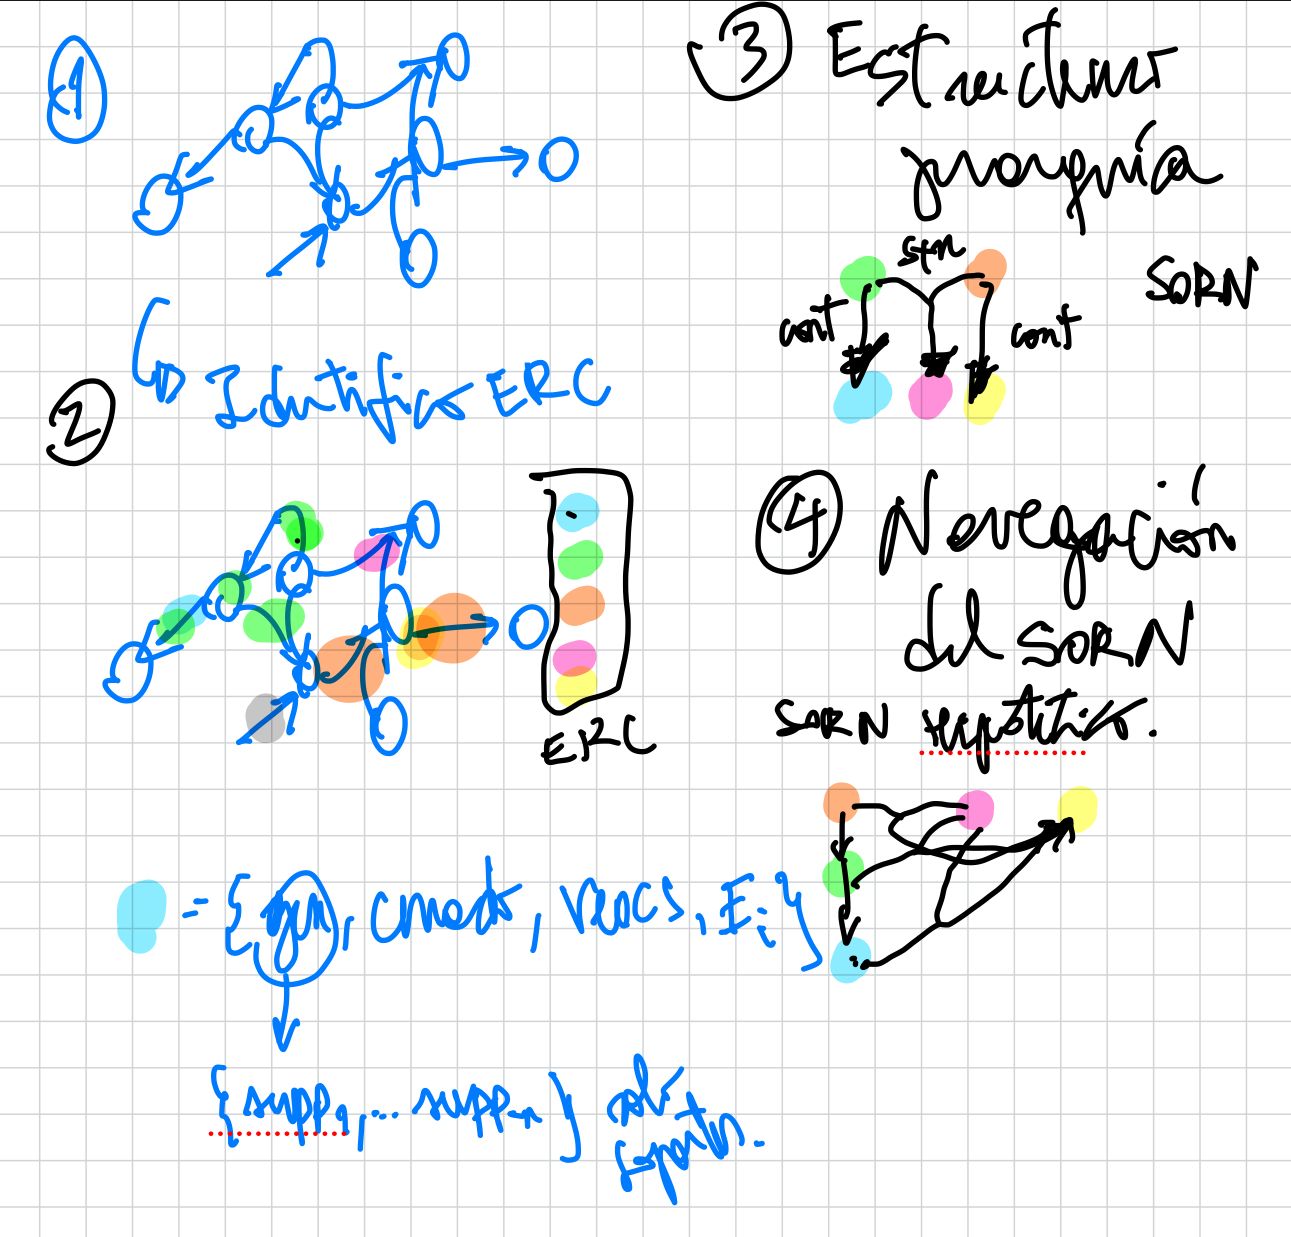 1
Identificar ERC
2
ERC
= {gen, cmeds, reacs, Ei}
{supp1, ... supp_n}
3 Estructura
jerarquía
syn
cont
cont
SORN
4 Navegación
del SORN
SORN